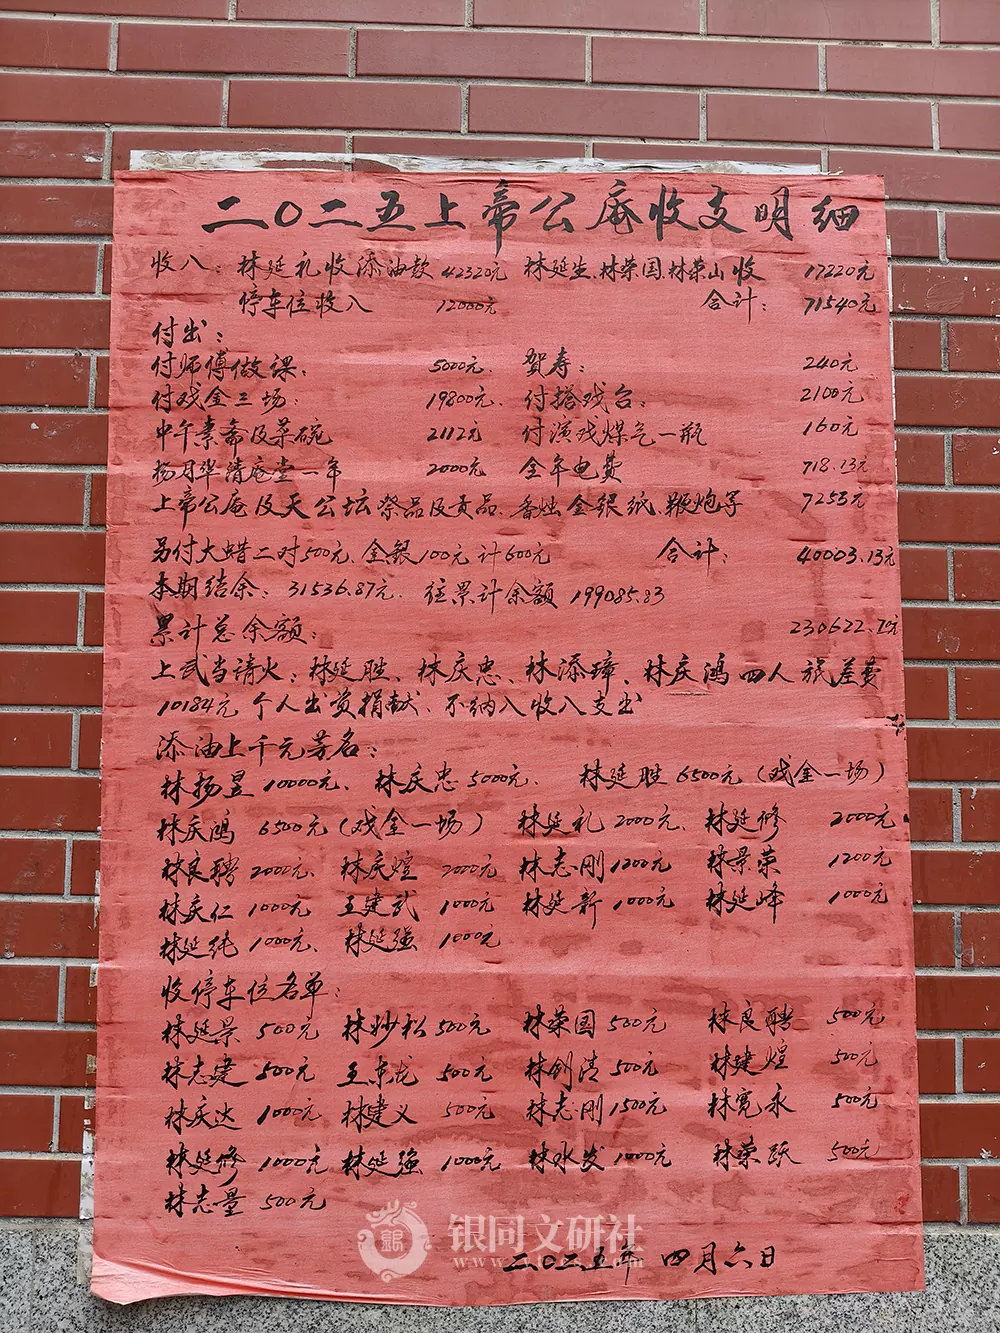 二〇二五上帝公庵收支明细
收入：林延礼收添油款 42320元 林延生.林荣国.林荣山收 17220元
停车位收入 12000元 合计： 71540元
付出：
付师傅做课. 5000元 贺寿： 240元
付戏金三场： 19800元. 付搭戏台： 2100元
中午素斋及菜碗 2112元 付演戏煤气一瓶 160元
杨月华清庵堂一年 2000元 全年电费 718.13元
上帝公庵及天公坛祭品及贡品、香烛金银纸、鞭炮等 7253元
另付大蜡二对500元、金银100元 计600元 合计： 40003.13元
本期结余：31536.87元. 往累计余额 199085.83
累计总余额： 230622.70元
上武当请火：林延胜、林庆忠、林添璋、林庆鸿 四人旅差费
10184元 个人出资捐献、不纳入收入支出
添油上千元芳名：
林扬昱10000元、林庆忠5000元. 林延胜6500元（戏金一场）
林庆鸿 6500元（戏金一场） 林延礼2000元、林延修 2000元
林良聘2000元、林庆煌 2000元 林志刚1200元 林景荣 1200元
林庆仁 1000元 王建武 1000元 林延新 1000元 林延峰 1000元
林延纯 1000元、林延强 1000元
收停车位名单：
林延景 500元 林妙松500元 林荣国500元 林良聘 500元
林志建 500元 王东龙 500元 林剑清500元 林建煌 500元
林庆达 1000元 林建义 500元 林志刚1500元 林宽永 500元
林延修 1000元 林延强 1000元 林水发1000元 林荣跃 500元
林志量 500元
二〇二五年 四月六日
银同文研社